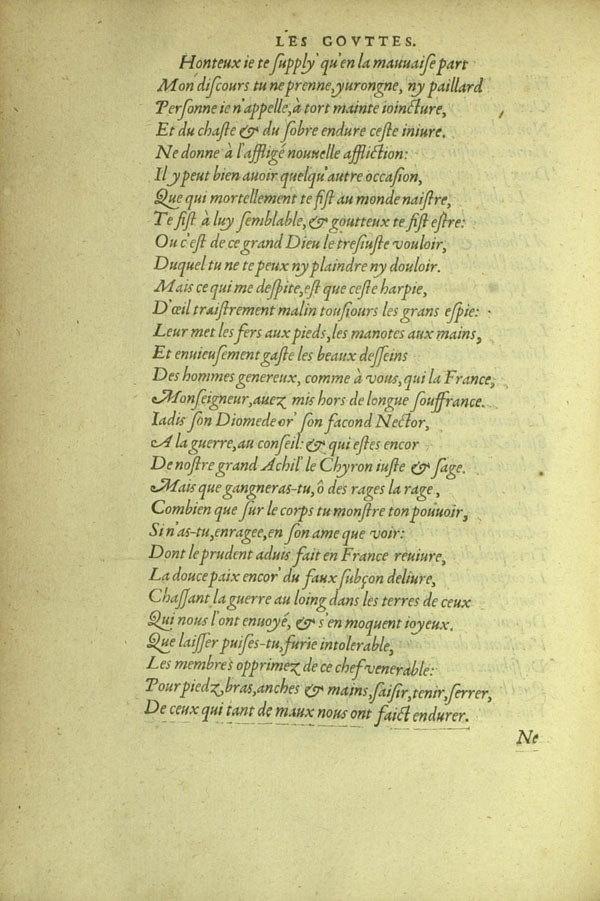 LES GOVTTES.
Honteux ie te supply' qu'en la mauuaise part
Mon discours tu ne prenne, yurongne, ny paillard
Personne ie n'appelle, à tort mainte ioincture,
Et du chaste & du sobre endure ceste iniure.
Ne donne à l'affligé nouuelle affliction:
Il y peut bien auoir quelqu'autre occasion,
Que qui mortellement te fist au monde naistre,
Te fist à luy semblable, & goutteux te fist estre:
Ou c'est de ce grand Dieu le tresiuste vouloir,
Duquel tu ne te peux ny plaindre ny douloir.
Mais ce qui me despite, est que ceste harpie,
D'œil traistrement malin tousiours les grans espie:
Leur met les fers aux pieds, les manotes aux mains,
Et enuieusement gaste les beaux desseins
Des hommes genereux, comme à vous, qui la France,
Monseigneur, auez mis hors de longue souffrance.
Iadis son Diomede or' son facond Nector,
A la guerre, au conseil: & qui estes encor
De nostre grand Achil' le Chyron iuste & sage.
Mais que gangneras-tu, ô des rages la rage,
Combien que sur le corps tu monstre ton pouuoir,
Si n'as-tu, enragee, en son ame que voir:
Dont le prudent aduis fait en France reuiure,
La douce paix encor' du faux subçon deliure,
Chassant la guerre au loing dans les terres de ceux
Qui nous l'ont enuoyé, & s'en moquent ioyeux.
Que laisser puises-tu, furie intolerable,
Les membres opprimez de ce chef venerable:
Pour piedz, bras, anches & mains, saisir, tenir, serrer,
De ceux qui tant de maux nous ont faict endurer.
Ne